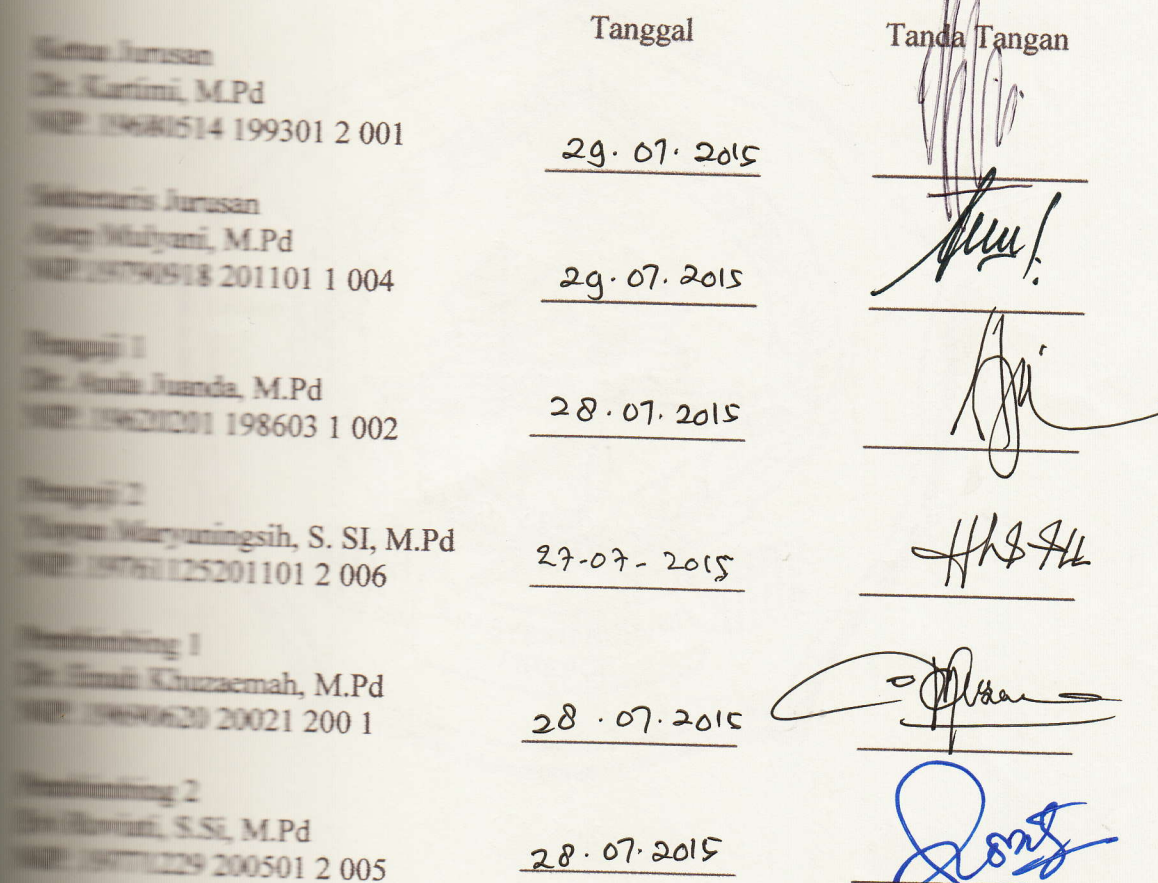 Tanggal Tanda Tangan
Ketua Jurusan
Dr. Kartimi, M.Pd
NIP. 19680514 199301 2 001
29.07.2015
Sekretaris Jurusan
Mulyani, M.Pd
NIP. 19790918 201101 1 004
29.07.2015
Penguji 1
Dr. Anda Juanda, M.Pd
NIP. 19620201 198603 1 002
28.07.2015
Penguji 2
Maryuningsih, S. SI, M.Pd
NIP. 19761125201101 2 006
27-07-2015
Pembimbing 1
Dr. Khuzaemah, M.Pd
NIP. 20021 200 1
28.07.2015
Pembimbing 2
S.Si, M.Pd
NIP. 19771229 200501 2 005
28.07.2015